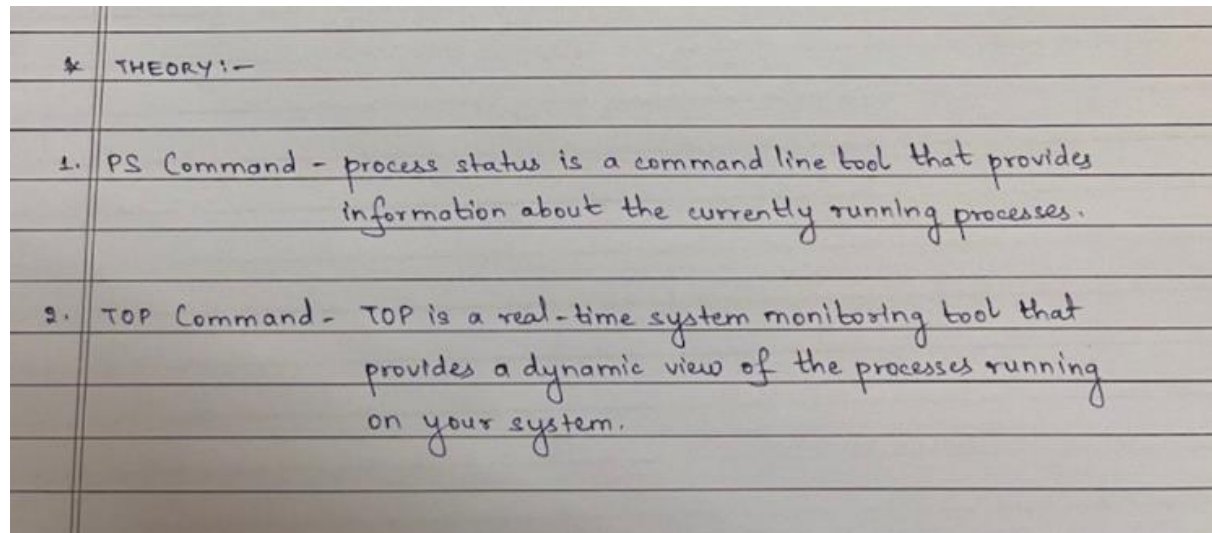 * THEORY :-
1. PS Command - process status is a command line tool that provides
information about the currently running processes.
2. TOP Command - TOP is a real-time system monitoring tool that
provides a dynamic view of the processes running
on your system.